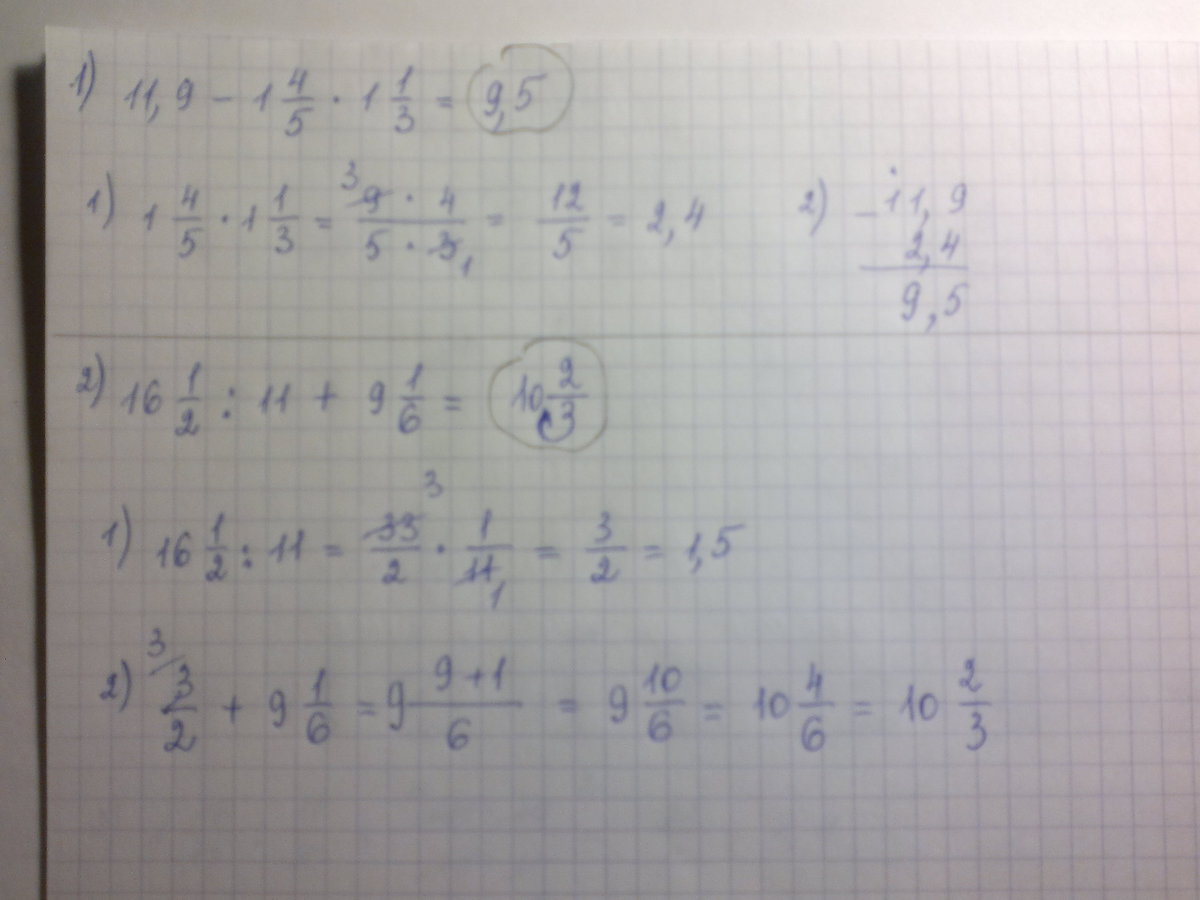 1) 11,9 - 1 4/5 · 1 1/3 = 9,5
1) 1 4/5 · 1 1/3 = 9 · 4 / 5 · 3 = 12/5 = 2,4
3
1
2) - 11,9
2,4
9,5
2) 16 1/2 : 11 + 9 1/6 = 10 2/3
1) 16 1/2 : 11 = 33/2 · 1/11 = 3/2 = 1,5
3
1
2) 3/2 + 9 1/6 = 9 9+1/6 = 9 10/6 = 10 4/6 = 10 2/3
3